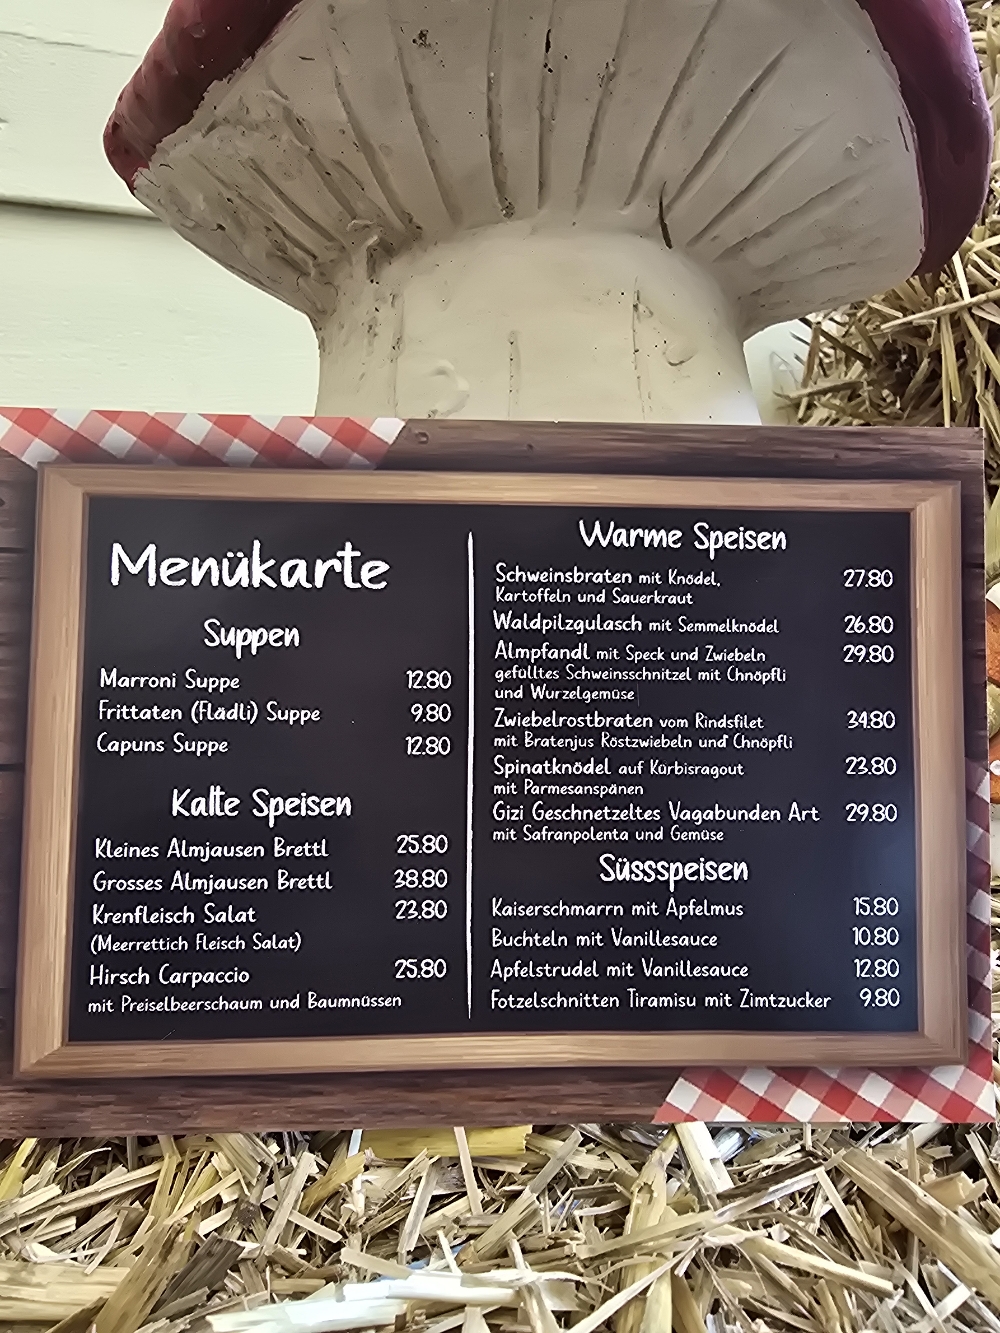 Menükarte
Suppen
Marroni Suppe 12.80
Frittaten (Flädli) Suppe 9.80
Capuns Suppe 12.80
Kalte Speisen
Kleines Almjausen Brettl 25.80
Grosses Almjausen Brettl 38.80
Krenfleisch Salat 23.80
(Meerrettich Fleisch Salat)
Hirsch Carpaccio 25.80
mit Preiselbeerschaum und Baumnüssen
Warme Speisen
Schweinsbraten mit Knödel, 27.80
Kartoffeln und Sauerkraut
Waldpilzgulasch mit Semmelknödel 26.80
Almpfandl mit Speck und Zwiebeln 29.80
gefülltes Schweinsschnitzel mit Chnöpfli
und Wurzelgemüse
Zwiebelrostbraten vom Rindsfilet 34.80
mit Bratenjus Röstzwiebeln und Chnöpfli
Spinatknödel auf Kürbisragout 23.80
mit Parmesanspänen
Gizi Geschnetzeltes Vagabunden Art 29.80
mit Safranpolenta und Gemüse
Süssspeisen
Kaiserschmarrn mit Apfelmus 15.80
Buchteln mit Vanillesauce 10.80
Apfelstrudel mit Vanillesauce 12.80
Fotzelschnitten Tiramisu mit Zimtzucker 9.80